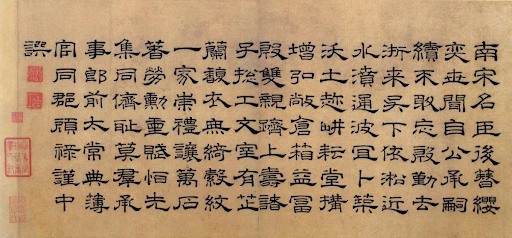 南宋名臣後簪纓
奕世聞自公承嗣
績不敢忘殷勤去
浙来吳下依淞近
水濆通波冝卜築
沃土趂畊耘堂搆
增弘敞倉箱益冨
殷雙親躋上壽諸
子総工文室有芷
蘭馥衣無綺縠紋
一家崇禮讓萬石
著勞勳重賜恒先
集同儕耻莫羣承
事郎前太常典簿
官同郡顧祿謹中
譔